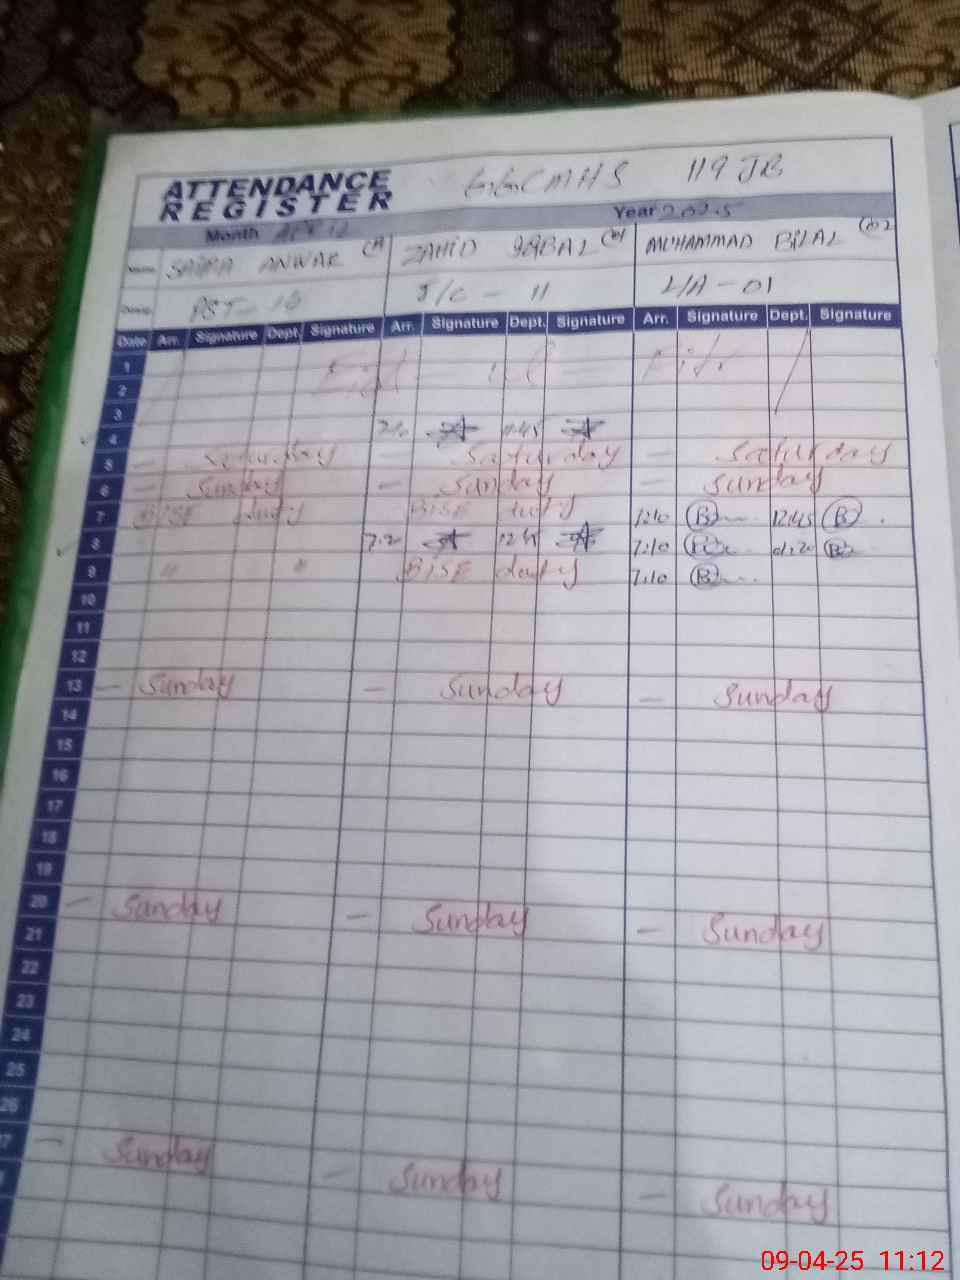 ATTENDANCE
REGISTER
119 JB
Month APRIL Year 2025
Name SAIRA ANWAR ZAHID IQBAL MUHAMMAD BILAL
Desig. PST - J/C - 11 L/A - 01
Date Arr. Signature Dept. Signature Arr. Signature Dept. Signature Arr. Signature Dept. Signature
1
2
3
4
5 — Saturday — Saturday — Saturday
6 — Sunday — Sunday — Sunday
7 BISE duty BISE duty 7:10 12:45
8 7:20 12:45 7:10
9 " " BISE duty 7:10
10
11
12
13 — Sunday — Sunday — Sunday
14
15
16
17
18
19
20 — Sunday — Sunday — Sunday
21
22
23
24
25
26
27 — Sunday — Sunday — Sunday
09-04-25 11:12